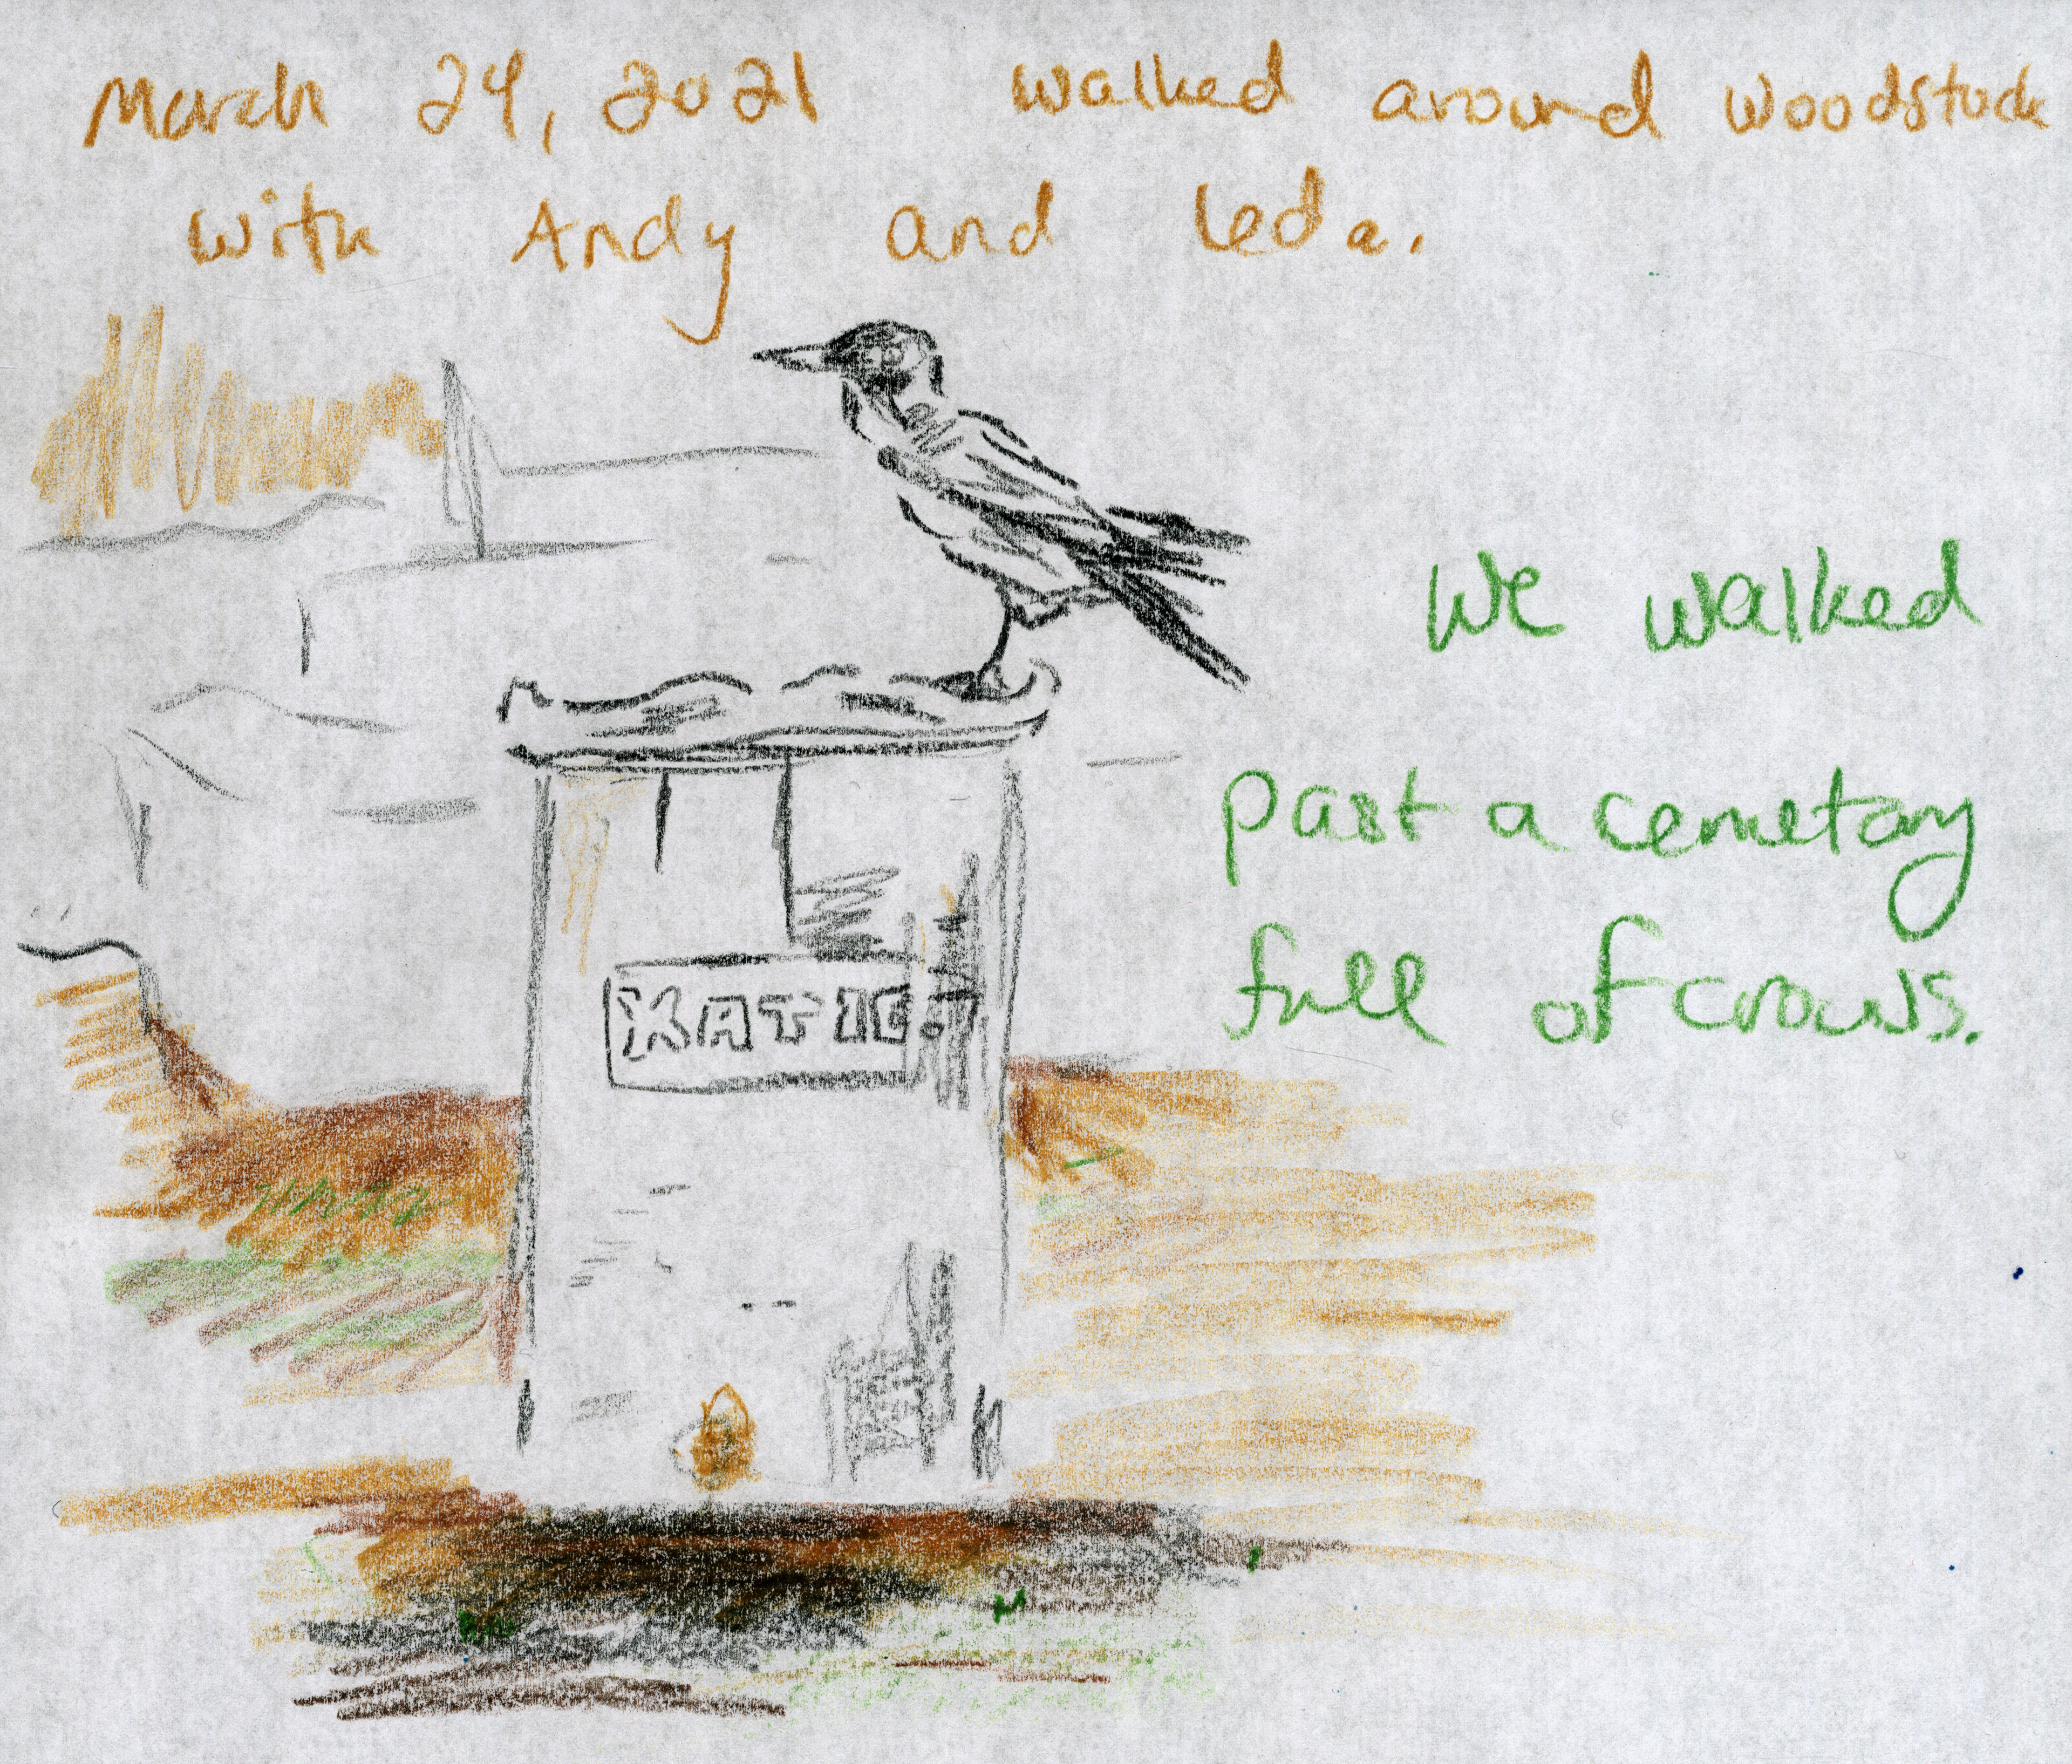 March 24, 2021 walked around Woodstock
with Andy and Leda.
We walked
past a cemetary
full of crows.
KATIE.